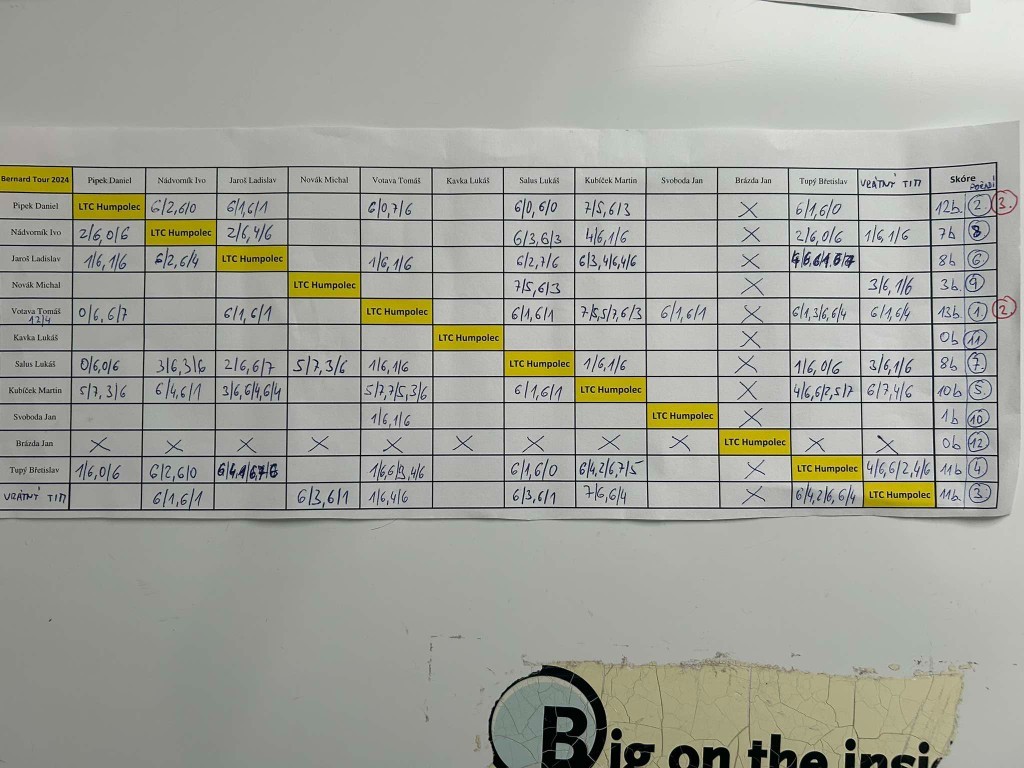 Bernard Tour 2024 Pipek Daniel Nádvorník Ivo Jaroš Ladislav Novák Michal Votava Tomáš Kavka Lukáš Salus Lukáš Kubíček Martin Svoboda Jan Brázda Jan Tupý Břetislav VRÁTNÝ TIM Skóre POŘADÍ
Pipek Daniel LTC Humpolec 6/2,6/0 6/1,6/1 6/0,7/6 6/0,6/0 7/5,6/3 X 6/1,6/0 12b. 2. 3.
Nádvorník Ivo 2/6,0/6 LTC Humpolec 2/6,4/6 6/3,6/3 4/6,1/6 X 2/6,0/6 1/6,1/6 7b 8
Jaroš Ladislav 1/6,1/6 6/2,6/4 LTC Humpolec 1/6,1/6 6/2,7/6 6/3,4/6,4/6 X 8b 6
Novák Michal LTC Humpolec 7/5,6/3 X 3/6,1/6 3b. 9
Votava Tomáš 0/6,6/7 6/1,6/1 LTC Humpolec 6/1,6/1 7/5,5/7,6/3 6/1,6/1 X 6/1,3/6,6/4 6/1,6/4 13b. 1. 2.
12/4
Kavka Lukáš LTC Humpolec X 0b 11
Salus Lukáš 0/6,0/6 3/6,3/6 2/6,6/7 5/7,3/6 1/6,1/6 LTC Humpolec 1/6,1/6 X 1/6,0/6 3/6,1/6 8b 7
Kubíček Martin 5/7,3/6 6/4,6/1 3/6,6/4,6/4 5/7,7/5,3/6 6/1,6/1 LTC Humpolec X 4/6,6/2,5/7 6/7,4/6 10b 5.
Svoboda Jan 1/6,1/6 LTC Humpolec X 1b 10
Brázda Jan X X X X X X X X X LTC Humpolec X X 0b 12
Tupý Břetislav 1/6,0/6 6/2,6/0 1/6,6/3,4/6 6/1,6/0 6/4,2/6,7/5 X LTC Humpolec 4/6,6/2,4/6 11b 4
VRÁTNÝ TIM 6/1,6/1 6/3,6/1 1/6,4/6 6/3,6/1 7/6,6/4 X 6/4,2/6,6/4 LTC Humpolec 11b. 3
Big on the insi